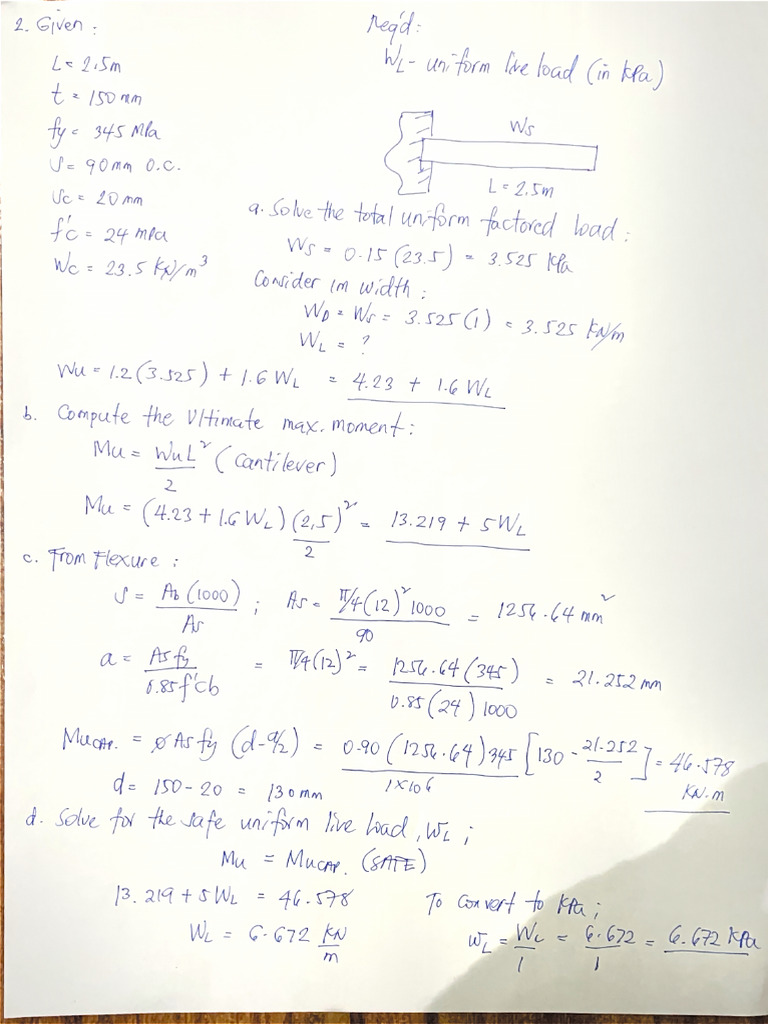 2. Given :
Req'd :
WL - uniform live load (in kPa)
L = 2.5m
t = 150 mm
fy = 345 MPa
S = 90mm O.C.
Sc = 20mm
f'c = 24 mpa
Wc = 23.5 KN/m³
Ws
L = 2.5m
a. Solve the total uniform factored load :
Ws = 0.15 (23.5) = 3.525 kPa
Consider 1m width :
WD = Ws = 3.525 (1) = 3.525 KN/m
WL = ?
Wu = 1.2 (3.525) + 1.6 WL = 4.23 + 1.6 WL
b. Compute the Ultimate max. moment :
Mu = WuL²/2 (Cantilever)
Mu = (4.23 + 1.6 WL) (2.5)²/2 = 13.219 + 5 WL
c. From Flexure :
S = Ab (1000)/As ; As = π/4 (12)² 1000/90 = 1256.64 mm²
a = As fy/0.85 f'c b = π/4 (12)² = 1256.64 (345)/0.85 (24) 1000 = 21.252 mm
Mucap. = Ø As fy (d-a/2) = 0.90 (1256.64) 345/1x10⁶ [130 - 21.252/2] = 46.578 KN.m
d = 150 - 20 = 130 mm
d. Solve for the safe uniform live load, WL ;
Mu = Mucap. (SAFE)
13.219 + 5 WL = 46.578
WL = 6.672 KN/m
To convert to kPa ;
WL = WL/1 = 6.672/1 = 6.672 kPa